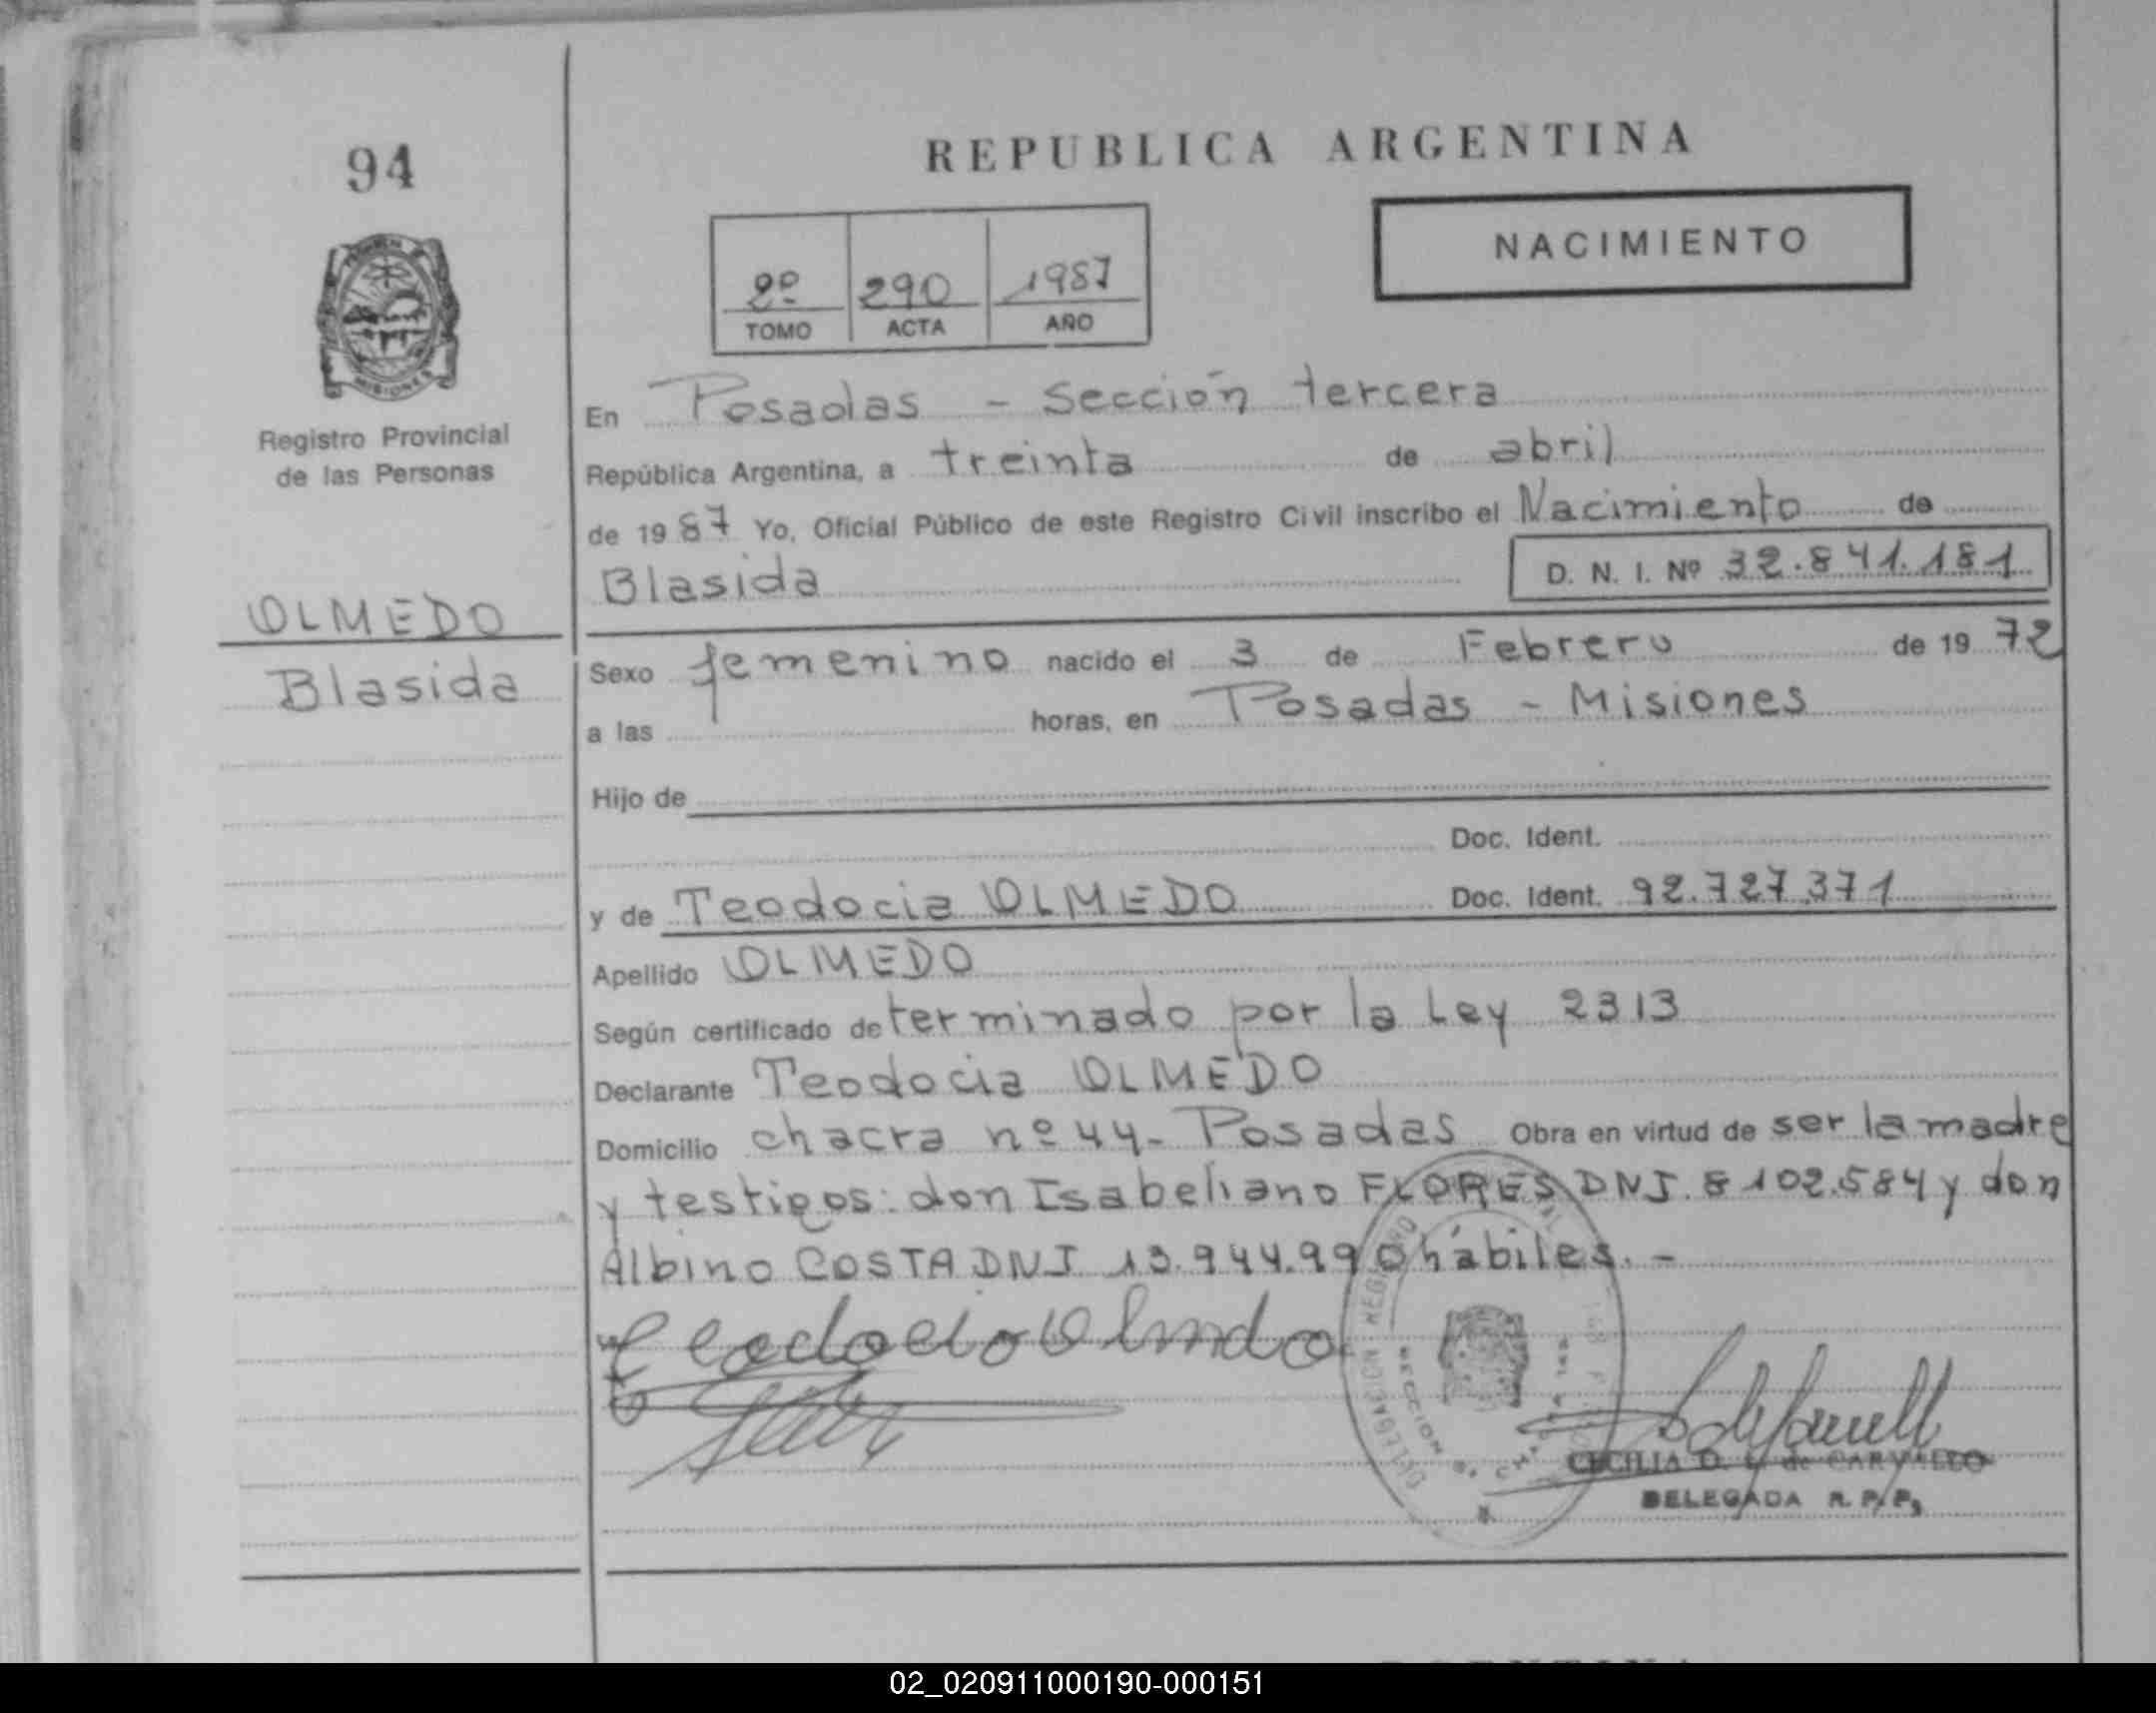 94
REPUBLICA ARGENTINA
NACIMIENTO
2º 290 1987
TOMO ACTA AÑO
MISIONES
Registro Provincial
de las Personas
En Posadas - Sección tercera
República Argentina, a treinta de abril
de 1987 Yo, Oficial Público de este Registro Civil inscribo el Nacimiento de
Blasida D. N. I. Nº 32.841.181
OLMEDO
Blasida
Sexo femenino nacido el 3 de Febrero de 1972
a las horas, en Posadas - Misiones
Hijo de
Doc. Ident.
y de Teodocia OLMEDO Doc. Ident. 92.727.371
Apellido OLMEDO
Según certificado determinado por la Ley 2313
Declarante Teodocia OLMEDO
Domicilio chacra nº 44- Posadas Obra en virtud de ser la madre
y testigos: don Isabeliano FLORES DNI. 8102.584 y don
Albino COSTA DNI 13.944.990 hábiles. -
CECILIA D. de CARVALLO
DELEGADA R. P. P.
02_020911000190-000151